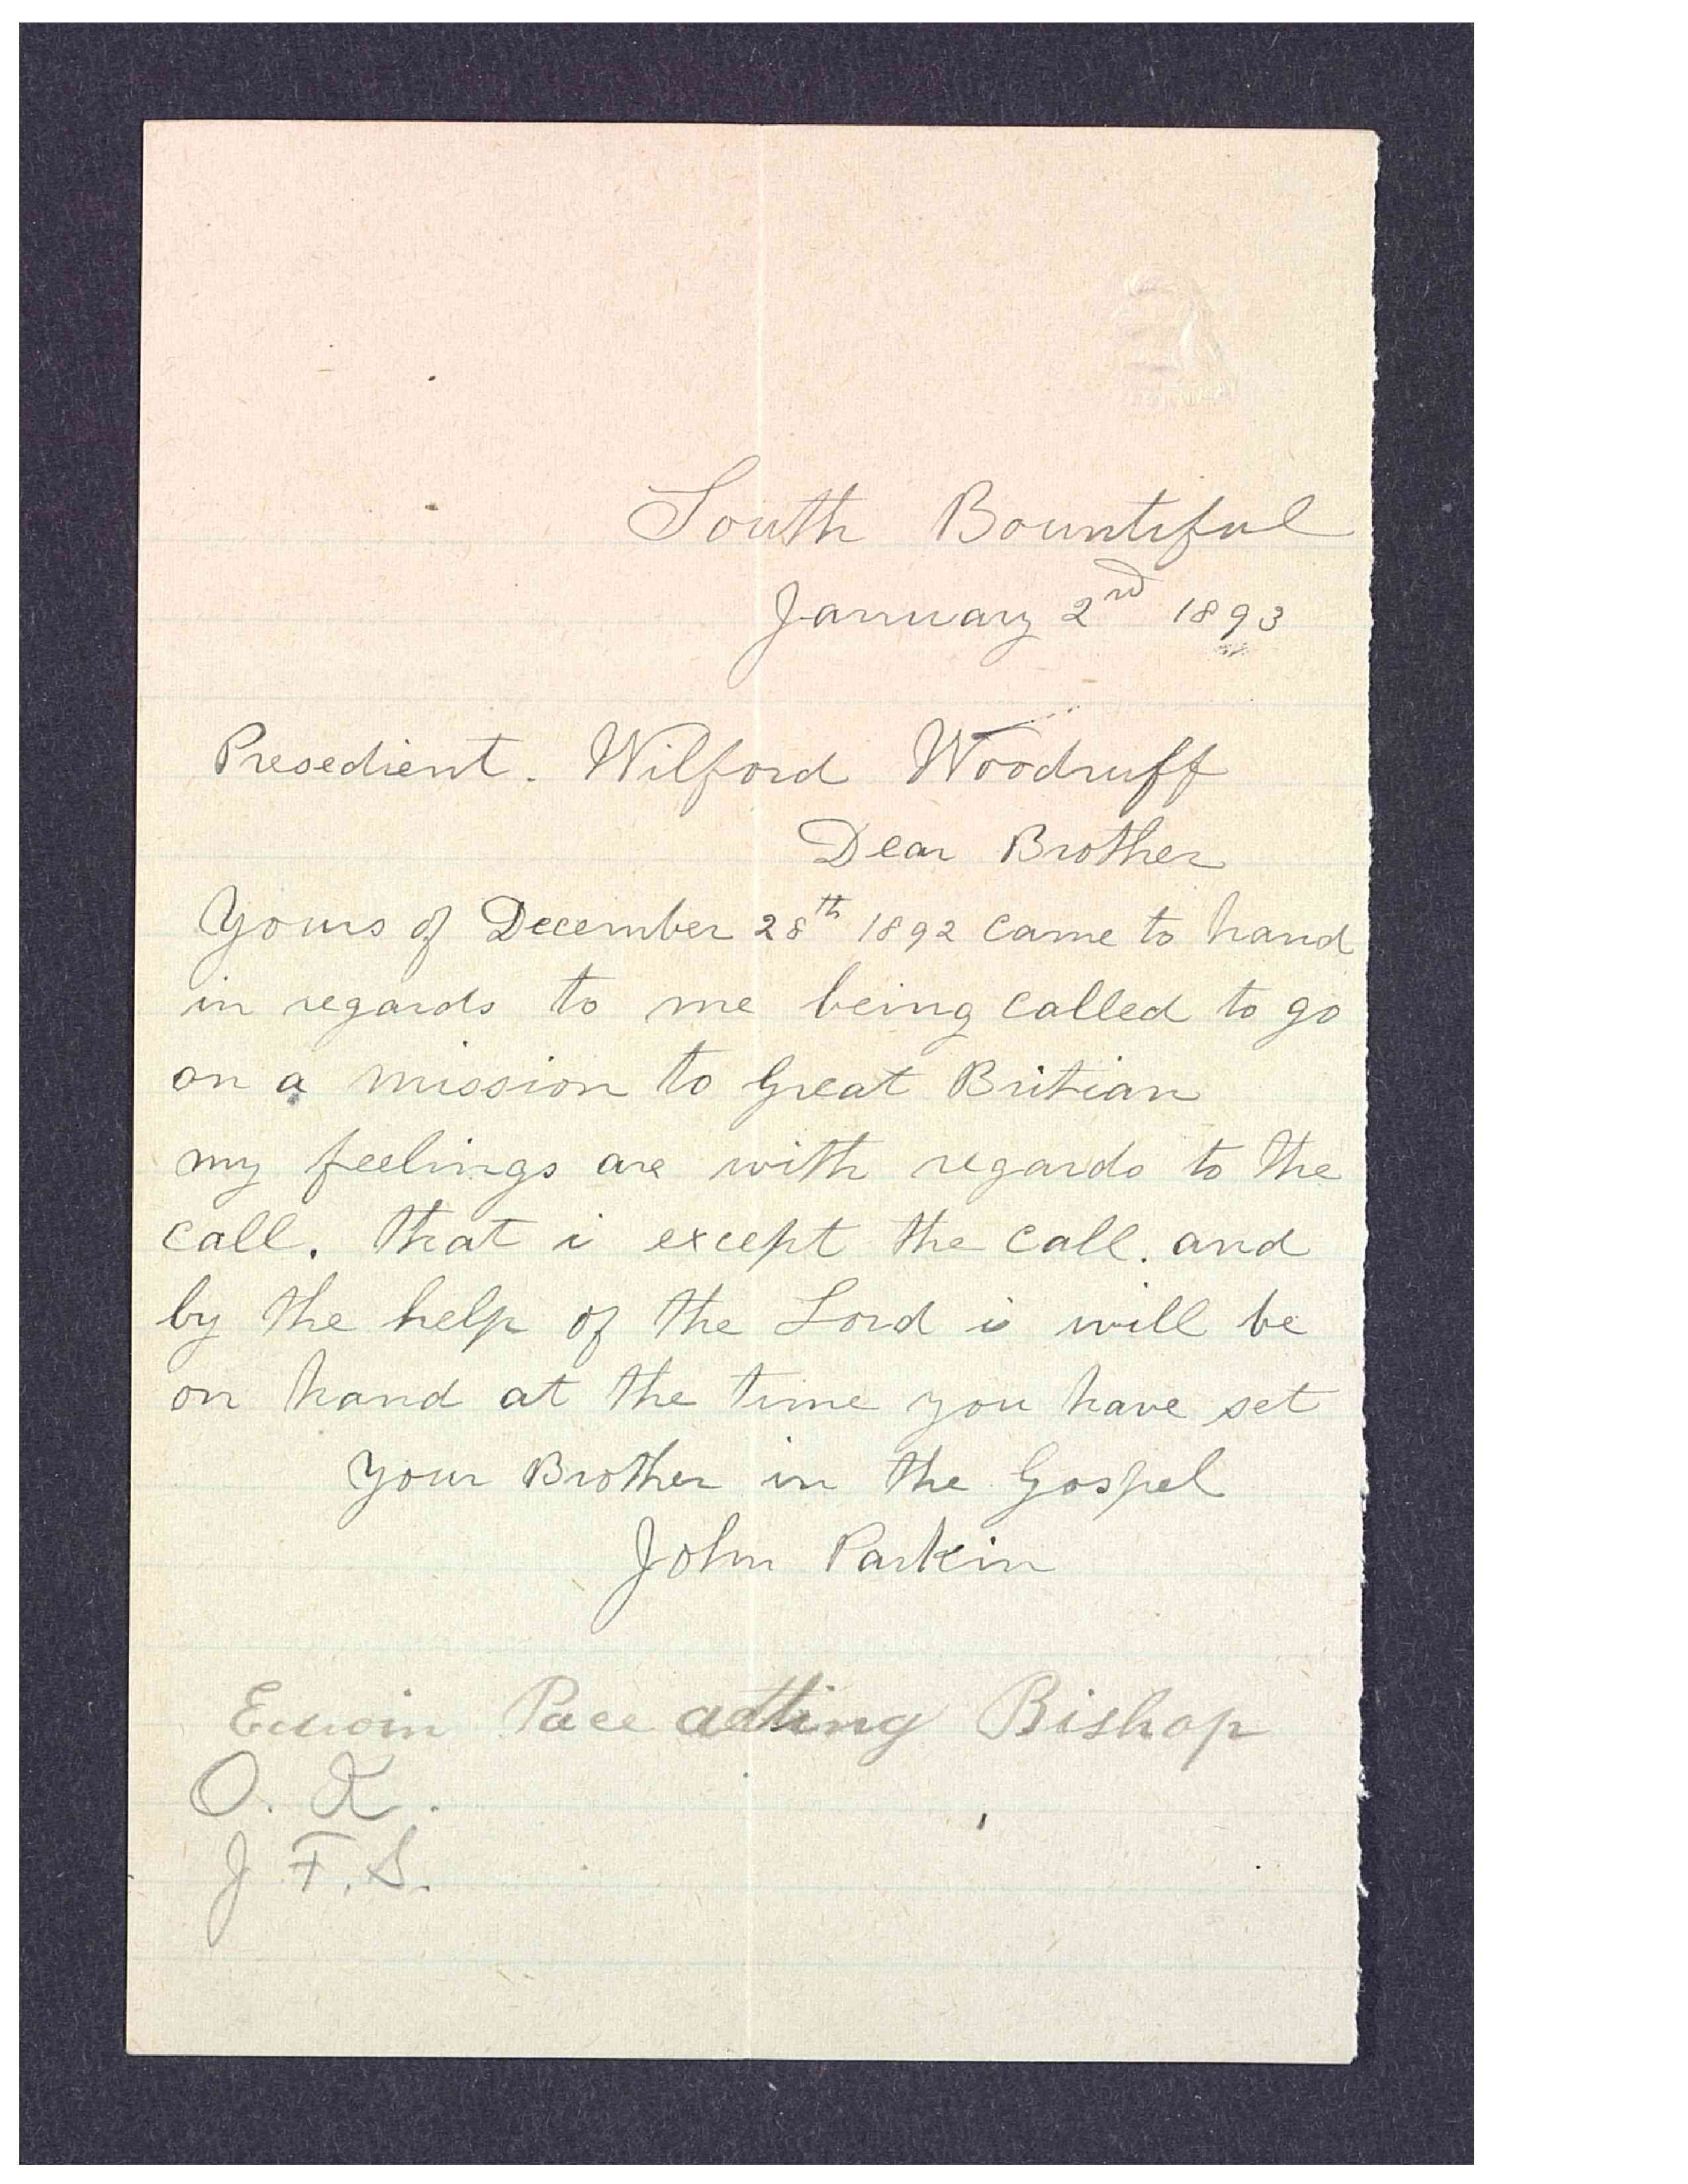 South Bountiful
January 2nd 1893
Presedient. Wilford Woodruff
Dear Brother
Yours of December 28th 1892 came to hand
in regards to me being called to go
on a mission to Great Britian
my feelings are with regards to the
call. that i except the call. and
by the help of the Lord i will be
on hand at the time you have set
your Brother in the Gospel
John Parkin
Edwin Pace actting Bishop
O. K.
J. F. S.